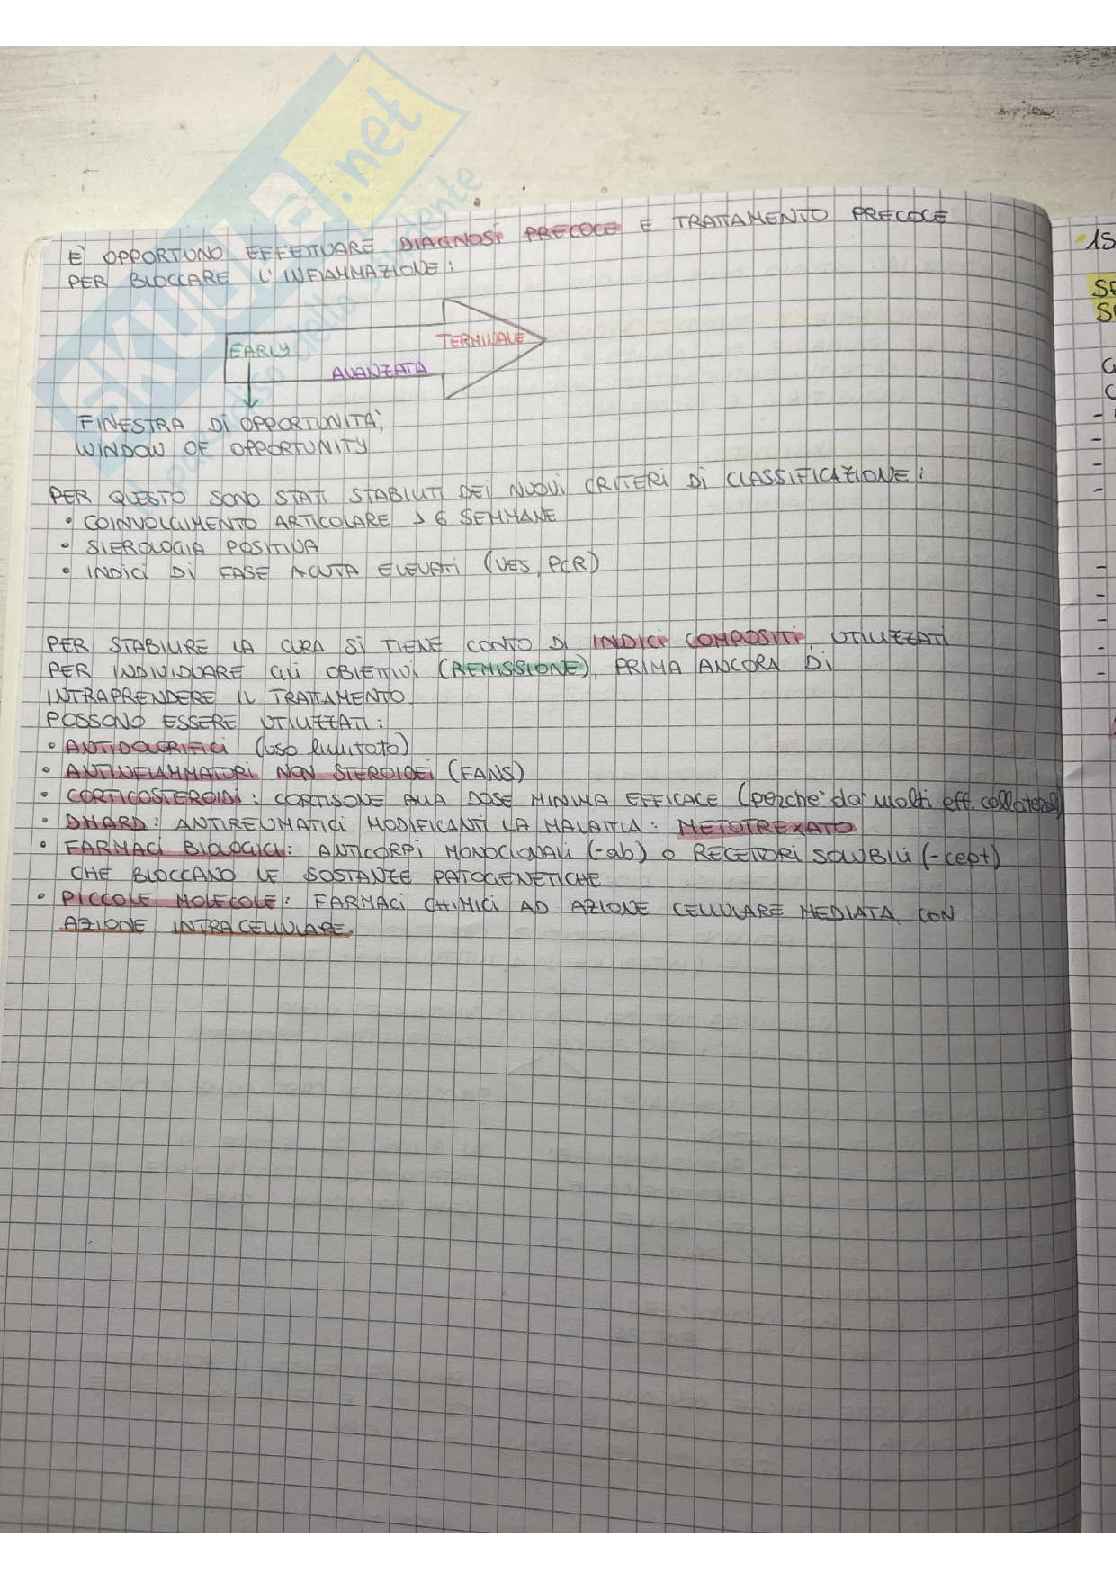 È OPPORTUNO EFFETTUARE DIAGNOSI PRECOCE E TRATTAMENTO PRECOCE
PER BLOCCARE L'INFIAMMAZIONE:
EARLY
AVANZATA
TERMINALE
FINESTRA DI OPPORTUNITÀ,
WINDOW OF OPPORTUNITY
PER QUESTO SONO STATI STABILITI DEI NUOVI CRITERI DI CLASSIFICAZIONE:
• COINVOLGIMENTO ARTICOLARE > 6 SETTIMANE
• SIEROLOGIA POSITIVA
• INDICI DI FASE ACUTA ELEVATI (VES, PCR)
PER STABILIRE LA CURA SI TIENE CONTO DI INDICI COMPOSITI, UTILIZZATI
PER INDIVIDUARE GLI OBIETTIVI (REMISSIONE) PRIMA ANCORA DI
INTRAPRENDERE IL TRATTAMENTO.
POSSONO ESSERE UTILIZZATI:
• ANTIDOLORIFICI (uso limitato)
• ANTINFIAMMATORI NON STEROIDEI (FANS)
• CORTICOSTEROIDI: CORTISONE ALLA DOSE MINIMA EFFICACE (perché dà molti eff. collaterali)
• DMARD: ANTIREUMATICI MODIFICANTI LA MALATTIA: METOTREXATO
• FARMACI BIOLOGICI: ANTICORPI MONOCLONALI (-ab) O RECETTORI SOLUBILI (-cept)
CHE BLOCCANO LE SOSTANZE PATOGENETICHE
• PICCOLE MOLECOLE: FARMACI CHIMICI AD AZIONE CELLULARE MEDIATA, CON
AZIONE INTRACELLULARE.
SKUOLA.net